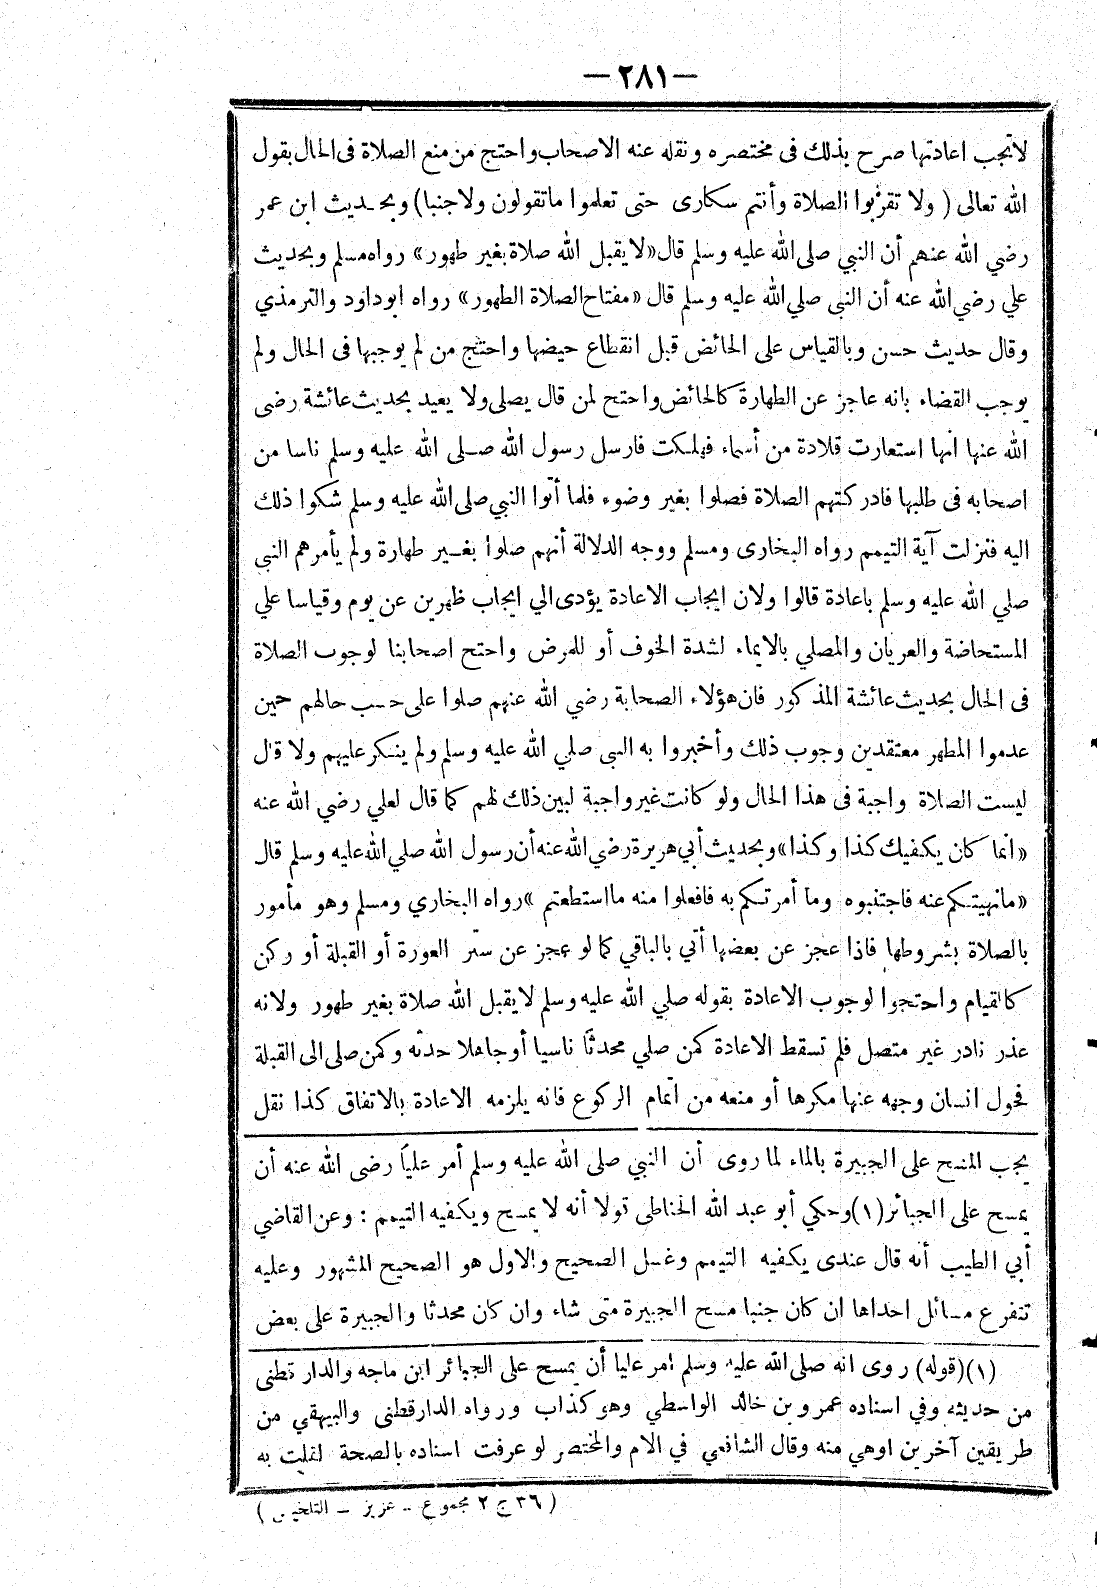 —٢٨١—
لاتجب اعادتها صرح بذلك فى مختصره ونقله عنه الاصحاب واحتج من منع الصلاة فى الحال بقول
الله تعالى ( ولا تقربوا الصلاة وأنتم سكارى حتى تعلموا ماتقولون ولاجنبا) وبحديث ابن عمر
رضي الله عنهم أن النبي صلى الله عليه وسلم قال «لا يقبل الله صلاة بغير طهور» رواه مسلم وبحديث
علي رضي الله عنه أن النبى صلي الله عليه وسلم قال «مفتاح الصلاة الطهور» رواه ابو داود والترمذي
وقال حديث حسن وبالقياس على الحائض قبل انقطاع حيضها واحتج من لم يوجبها فى الحال ولم
يوجب القضاء بانه عاجز عن الطهارة كالحائض واحتح لمن قال يصلى ولا يعيد بحديث عائشة رضى
الله عنها انها استعارت قلادة من أسماء فهلكت فارسل رسول الله صلى الله عليه وسلم ناسا من
اصحابه فى طلبها فادركتهم الصلاة فصلوا بغير وضوء فلما أتوا النبي صلى الله عليه وسلم شكوا ذلك
اليه فنزلت آية التيمم رواه البخارى ومسلم ووجه الدلالة أنهم صلوا بغير طهارة ولم يأمرهم النبي
صلي الله عليه وسلم باعادة قالوا ولان ايجاب الاعادة يؤدى الي ايجاب ظهرين عن يوم وقياسا علي
المستحاضة والعريان والمصلي بالايماء لشدة الخوف أو للمرض واحتح اصحابنا لوجوب الصلاة
فى الحال بحديث عائشة المذكور فان هؤلاء الصحابة رضي الله عنهم صلوا على حسب حالهم حين
عدموا المطهر معتقدين وجوب ذلك وأخبروا به النبى صلي الله عليه وسلم ولم ينكر عليهم ولا قال
ليست الصلاة واجبة فى هذا الحال ولو كانت غير واجبة لبين ذلك لهم كما قال لعلي رضي الله عنه
«انما كان يكفيك كذا وكذا» وبحديث أبي هريرة رضي الله عنه أن رسول الله صلي الله عليه وسلم قال
«مانهيتكم عنه فاجتنبوه وما أمرتكم به فافعلوا منه مااستطعتم » رواه البخاري ومسلم وهو مأمور
بالصلاة بشروطها فاذا عجز عن بعضها أتي بالباقي كما لو عجز عن ستر العورة أو القبلة أو ركن
كالقيام واحتجوا لوجوب الاعادة بقوله صلي الله عليه وسلم لايقبل الله صلاة بغير طهور ولانه
عذر نادر غير متصل فلم تسقط الاعادة كمن صلي محدثا ناسيا أو جاهلا حدثه وكمن صلى الى القبلة
فحول انسان وجهه عنها مكرها أو منعه من اتمام الركوع فانه يلزمه الاعادة بالاتفاق كذا نقل
يجب المسح على الجبيرة بالماء لما روى أن النبي صلى الله عليه وسلم أمر علياً رضى الله عنه أن
يمسح على الجبائر (١) وحكي أبو عبد الله الحناطى قولا أنه لا يمسح ويكفيه التيمم : وعن القاضي
أبي الطيب أنه قال عندى يكفيه التيمم وغسل الصحيح والاول هو الصحيح المشهور وعليه
تتفرع مسائل احداها ان كان جنبا مسح الجبيرة متى شاء وان كان محدثا والجبيرة على بعض
(١) (قوله) روى انه صلى الله عليه وسلم أمر عليا أن يمسح على الجبائر ابن ماجه والدار قطنى
من حديثه وفي اسناده عمرو بن خالد الواسطي وهو كذاب ورواه الدارقطنى والبيهقي من
طريقين آخرين اوهي منه وقال الشافعي في الام والمختصر لو عرفت اسناده بالصحة لقلت به
( ٣٦ ج ٢ مجموع – عزيز – التلخيص )